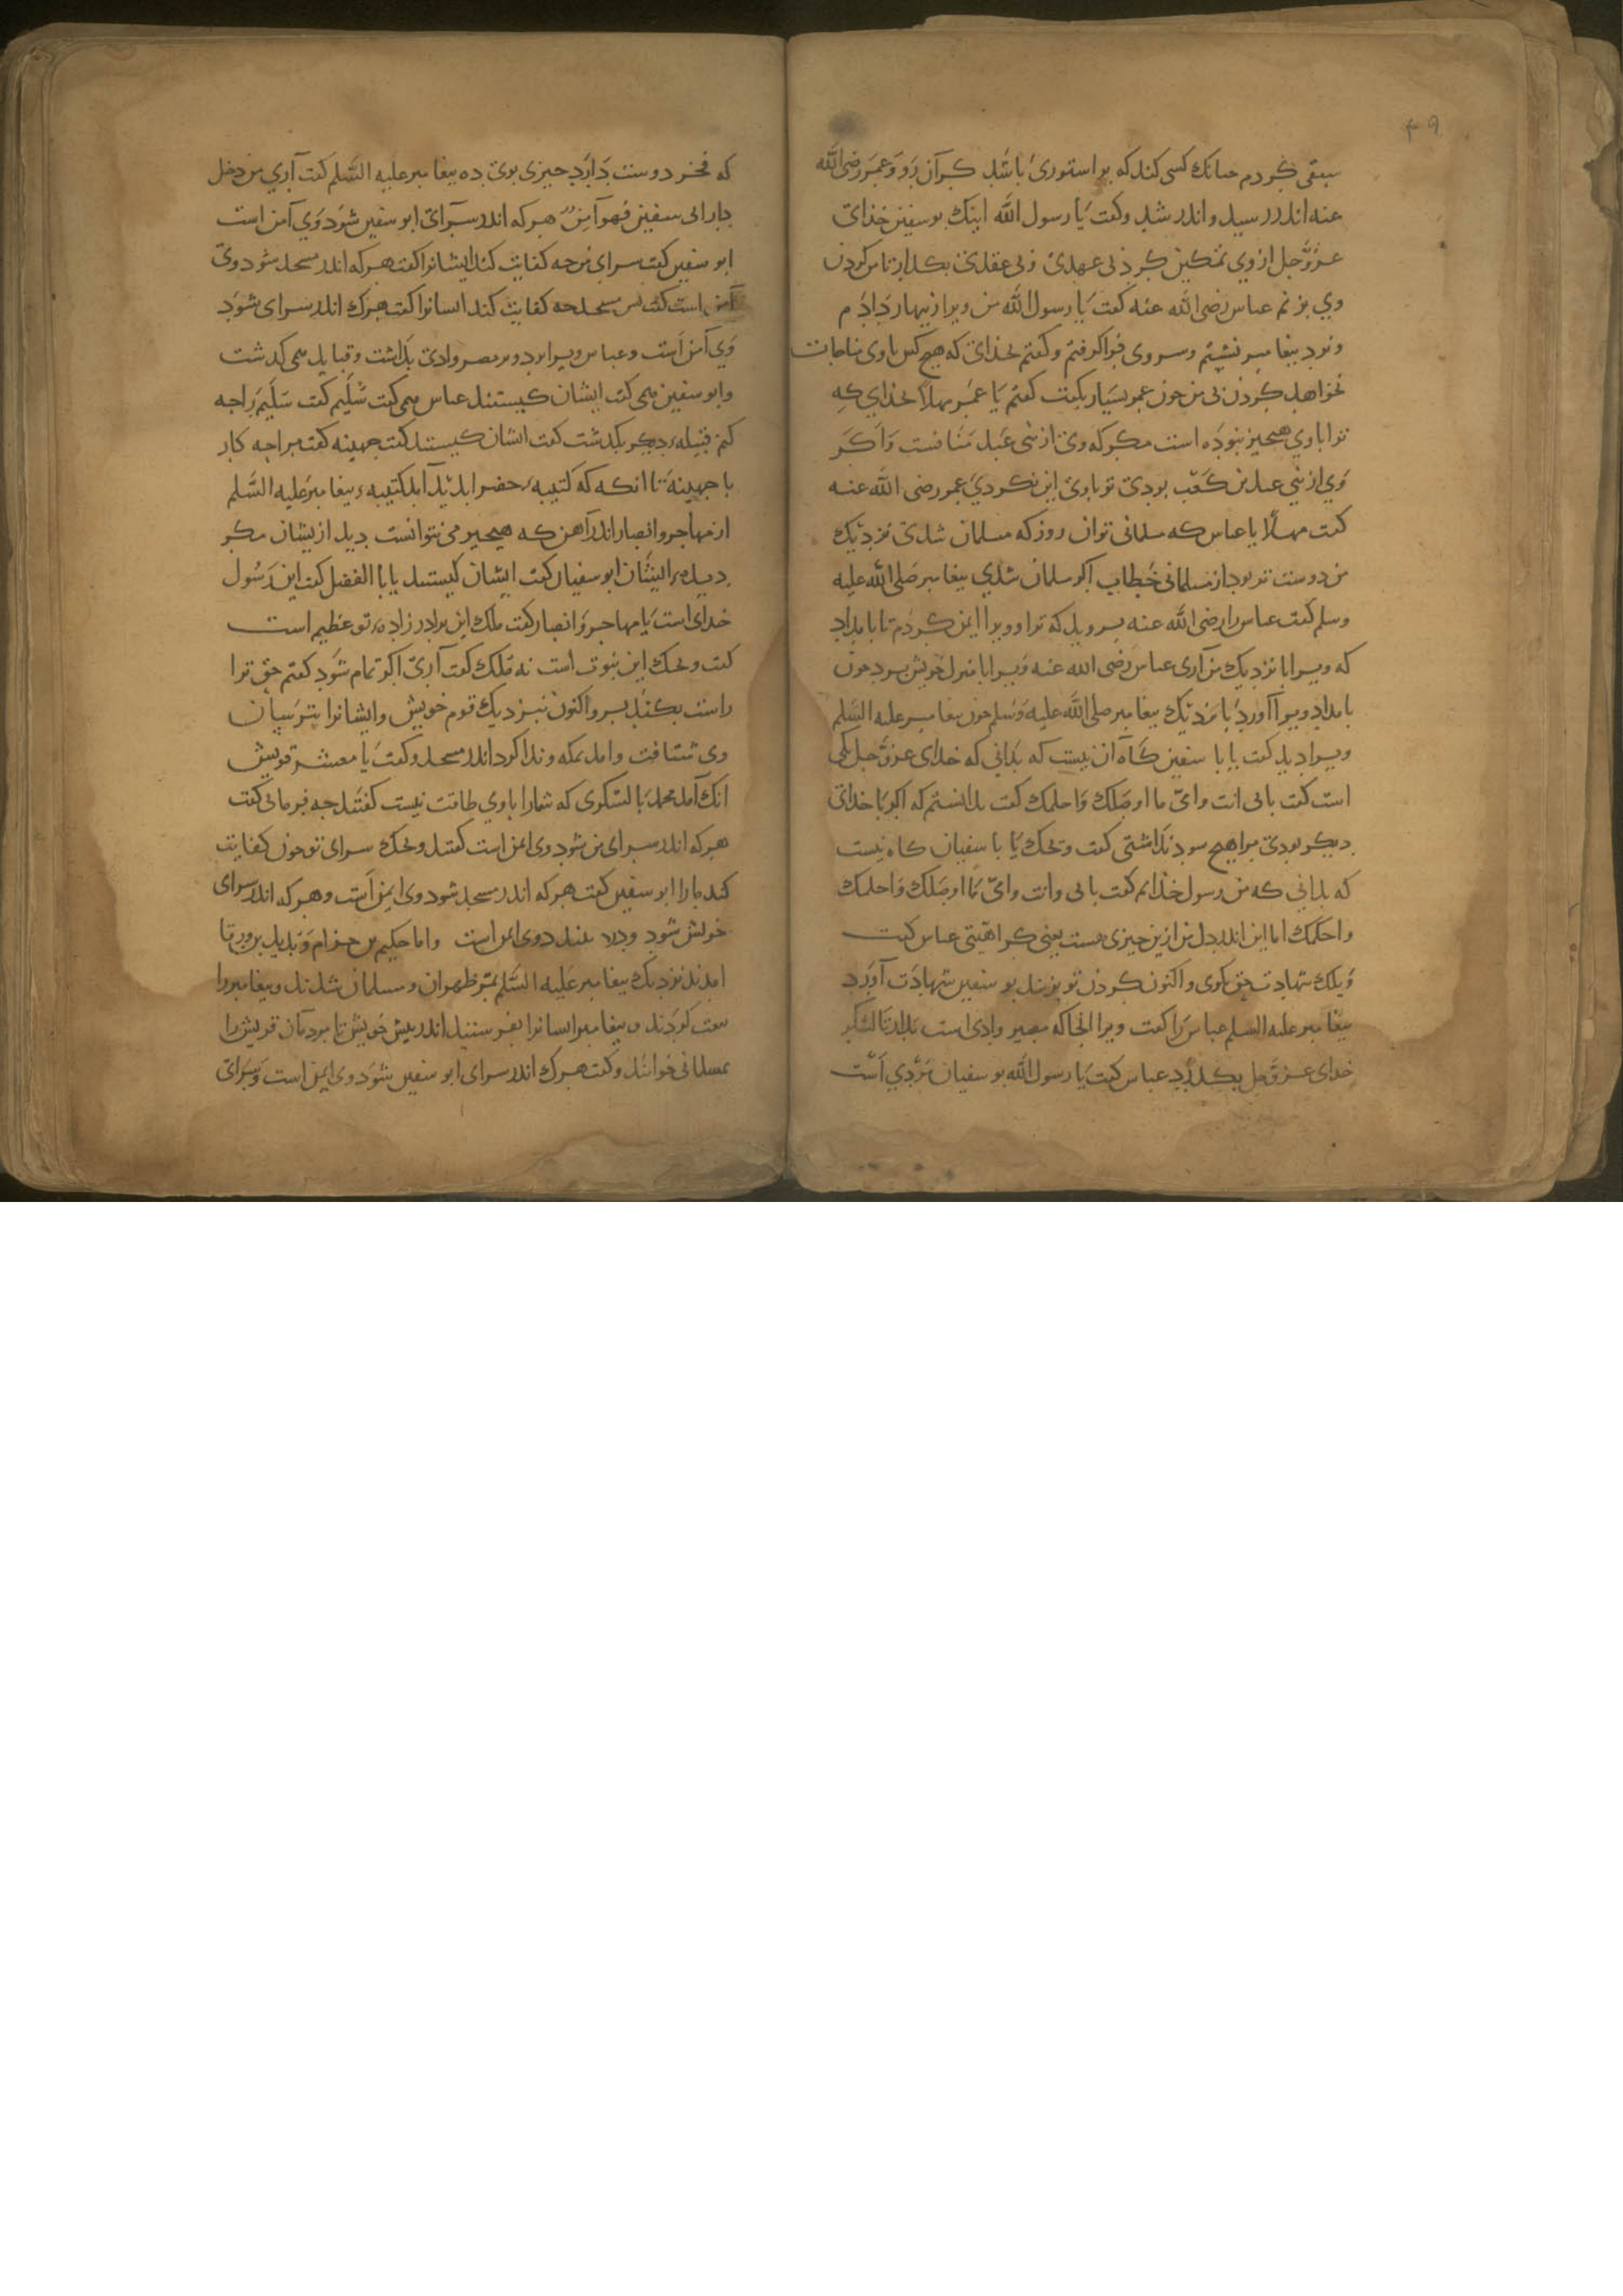 ۴۹
سبقی کردم جنانک کسی کند که بر استوری باشد کران رو و عمر رضی الله
عنه اندر رسید و اندر شد و کفت یا رسول الله اینک بوسفین خذای
عزوجل از وی تمکین کرد بی عهدی و بی عقدی بکذار تا من کردن
وی بزنم عباس رضی الله عنه کفت یا رسول الله من ویرا زینهار داذم
و نزد بیغامبر نشستم و سر وی فرا کرفتم و کفتم بخذای که هیج کس با وی مناجات
نخواهد کردن بی من جون عمر بسیار بکفت کفتم یا عمر مهلا بخذای که
ترا با وی هیجیز نبوده است مکر که وی از بنی عبد منافست و اکر
وی از بنی عدی بن کعب بودی تو با وی این نکردی عمر رضی الله عنه
کفت مهلا یا عباس که مسلمانی تو ان روز که مسلمان شدی نزدیک
من دوست تر بود از مسلمانی خطاب اکر مسلمان شدی بیغامبر صلی الله علیه
وسلم کفت عباس را رضی الله عنه برو یله که ترا و ویرا ایمن کردم تا بامداد
که ویرا با نزدیک من آری عباس رضی الله عنه ویرا با منزل خویش برد جون
بامداد ویرا آورد با نزدیک بیغامبر صلی الله علیه وسلم جون بیغامبر علیه السلم
ویرا دید کفت یا با سفین کاه آن نیست که بدانی که خدای عزوجل یکی
است کفت بابی انت وامی ما اوصلک واحلمک کفت بدانستم که اکر با خدای
دیکر بودی مرا هیج سود نداشتی کفت ویحک یا با سفیان کاه نیست
که بدانی که من رسول خذایم کفت بابی وانت وامی ما اوصلک واحلمک
واحکمک اما این اندر دل من ازین جیزی هست یعنی کراهیتی عباس کفت
ویلک شهادت حق بکوی و اکنون کردن تو بزنند بو سفین شهادت آورد
بیغامبر علیه السلم عباس را کفت ویرا انجا که مصیر وادی است بدار تا لشکر
خدای عزوجل بکذرد عباس کفت یا رسول الله بو سفیان مردی است
که فخر دوست دارد جیزی بوی ده بیغامبر علیه السلم کفت آری من دخل
دار ابی سفین فهو آمن هر که اندر سرای ابو سفین شود وی آمن است
ابو سفین کفت سرای من جه کفایت کند ایشانرا کفت هر که اندر مسجد شود وی
آمن است کفت بس مسجد جه کفایت کند ایسانرا کفت هرک اندر سرای شود
وی آمن است و عباس ویرا برد و بر مصیر وادی بداشت و قبایل همی کدشت
و ابو سفین همی کفت ایشان کیستند عباس همی کفت سلیم کفت سلیم را جه
کنم قبیله دیکر بکدشت کفت ایشان کیستند کفت جهینه کفت مرا جه کار
با جهینه تا انکه که کتیبه خضرا بدید آمد کتیبه بیغامبر علیه السلم
از مهاجر و انصار اندر آهن که هیجیز می نتوانست دید از یشان مکر
دیده ایشان ابو سفیان کفت ایشان کیستند یا با الفضل کفت این رسول
خدای است با مهاجر و انصار کفت ملک این برادر زاده تو عظیم است
کفت ویحک این نبوت است نه ملک کفت آری اکر تمام شود کفتم حق ترا
راست بکفتند برو اکنون نبزدیک قوم خویش و ایشانرا بترسان
وی شتافت و امد بمکه و ندا کرد اندر مسجد و کفت یا معشر قریش
انک آمد محمد با لشکری که شما را با وی طاقت نیست کفتند جه فرمائی کفت
هر که اندر سرای من شود وی ایمن است کفتند ویحک سرای تو جون کفایت
کند ما را ابو سفین کفت هر که اندر مسجد شود وی ایمن است و هر که اندر سرای
خویش شود و در ببندد وی ایمن است و اما حکیم بن حزام و بدیل بن ورقا
امدند نزدیک بیغامبر علیه السلم بمر ظهران و مسلمان شدند و بیغامبر را
بیعت کردند و بیغامبر ایسانرا بفرستند اندر بیش خویش تا مردمان قریش را
بمسلمانی خوانند و کفت هرک اندر سرای ابو سفین شود وی ایمن است و سرای